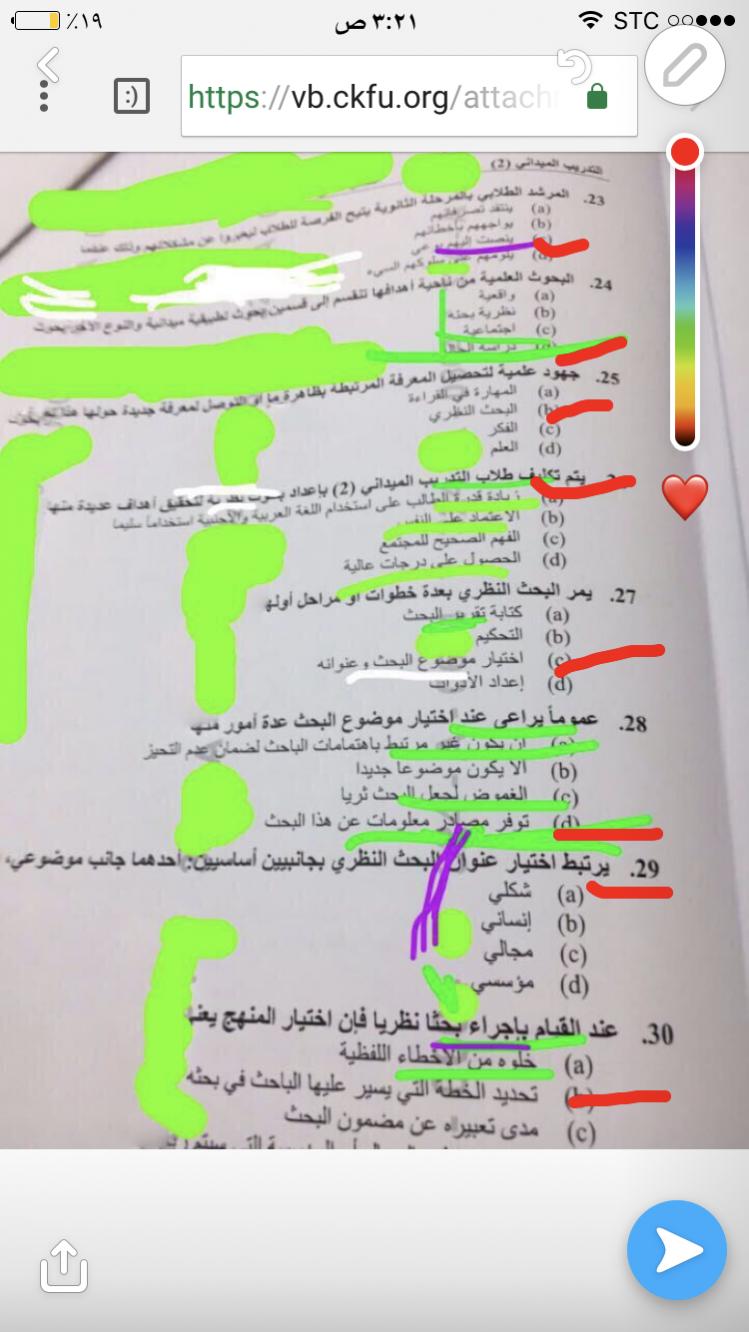 ٪١٩
٣:٢١ ص
STC
https://vb.ckfu.org/attach
:)
التدريب الميداني (2)
23. المرشد الطلابي بالمرحلة الثانوية يتيح الفرصة للطلاب ليعبروا عن مشكلاتهم وذلك عندما
(a) ينتقد تصرفاتهم
(b) يواجههم بأخطائهم
ينصت إليهم بوعي
(d) يلومهم على سلوكهم السيء
24. البحوث العلمية من ناحية أهدافها تنقسم إلى قسمين بحوث تطبيقية ميدانية والنوع الآخر بحوث
(a) واقعية
(b) نظرية بحته
(c) اجتماعية
(d) دراسة الحالة
25. جهود علمية لتحصيل المعرفة المرتبطة بظاهرة ما أو التوصل لمعرفة جديدة حولها
(a) المهارة في القراءة
(b) البحث النظري
(c) الفكر
(d) العلم
يتم تكليف طلاب التدريب الميداني (2) بإعداد بحوث نظرية لتحقيق أهداف عديدة منها
(a) زيادة قدرة الطالب على استخدام اللغة العربية والأجنبية استخداماً سليما
(b) الاعتماد على النفس
(c) الفهم الصحيح للمجتمع
(d) الحصول على درجات عالية
27. يمر البحث النظري بعدة خطوات أو مراحل أولها
(a) كتابة تقرير البحث
(b) التحكيم
(c) اختيار موضوع البحث وعنوانه
(d) إعداد الأدوات
28. عموماً يراعى عند اختيار موضوع البحث عدة أمور منها
(a) ان يكون غير مرتبط باهتمامات الباحث لضمان عدم التحيز
(b) ألا يكون موضوعا جديدا
(c) الغموض لجعل البحث ثريا
(d) توفر مصادر معلومات عن هذا البحث
29. يرتبط اختيار عنوان البحث النظري بجانبيين أساسيين: أحدهما جانب موضوعي،
(a) شكلي
(b) إنساني
(c) مجالي
(d) مؤسسي
30. عند القيام بإجراء بحثا نظريا فإن اختيار المنهج يعني
(a) خلوه من الأخطاء اللفظية
(b) تحديد الخطة التي يسير عليها الباحث في بحثه
(c) مدى تعبيراه عن مضمون البحث